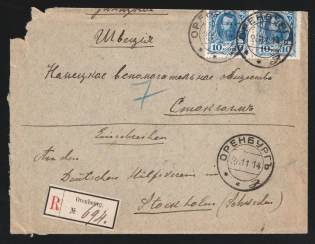 ОРЕНБУРГЪ
10 10
Швеція
Нѣмецкое вспомогательное общество
7
Стокгольмъ
Einschreiben
An den
ОРЕНБУРГЪ
11 14
Deutschen Hilfsverein in
Stockholm (Schweden)
R
Orenbourg.
№ 694.